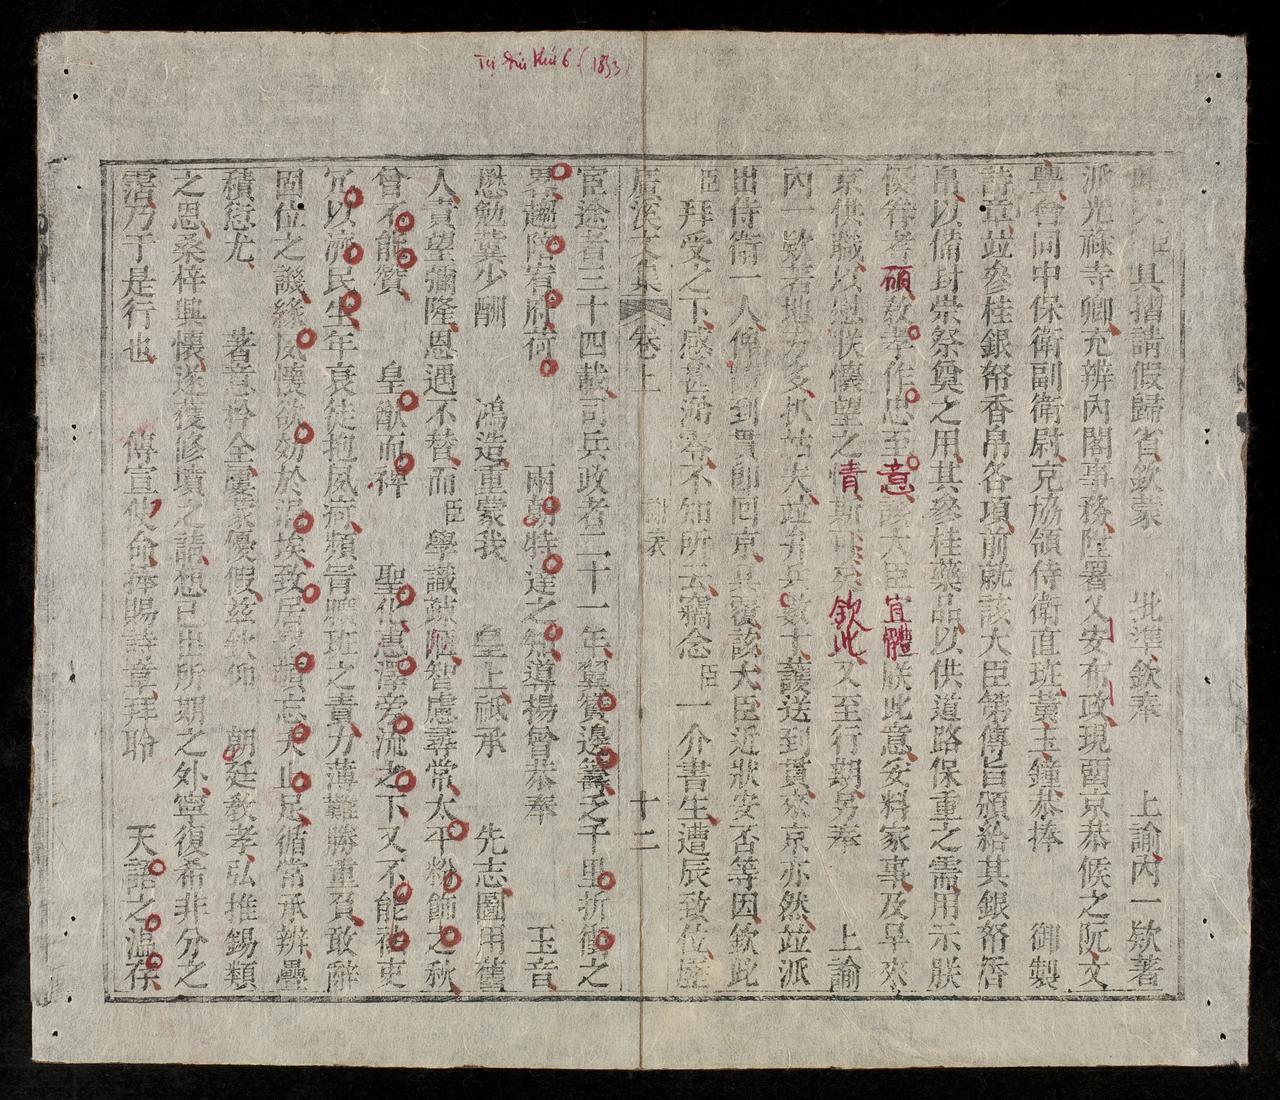 Tự Đức thứ 6 (1853)
具摺請假歸省欽蒙 批準欽奉 上諭內一欵著
派光祿寺卿充辨內閣事務陞署乂安布政現畱京恭候之阮文
會同中保衛副衛尉充協領侍衛直班黃玉鐘恭捧 御製
詩章竝參桂銀幣香帛各項前就該大臣第傳旨頒給其銀幣香
帛以備封崇祭奠之用其參桂藥品以供道路保重之需用示朕
眷者碩敎孝作忠至意該大臣宜體朕此意妥料家事及早來
京供職以慰朕懷望之情斯可矣欽此又至行期另奉 上諭
內 欵著地方多扒站夫竝弁兵數十護送到貫來京亦然竝派
出侍衛一人 到貫卽回京 覆該大臣近狀安否等因欽此
臣拜受之下感甚涕零不知所云竊念臣一介書生遭辰致位歷
唐溪文集 卷上 謝表 十二
宦途者三十四載司兵政者二十一年 贊邊籌之千里折衝之
畧趨陪宥府荷 兩朝特達之知導揚曾恭奉 玉音
懋勉冀少酬 鴻造重蒙我 皇上祗承 先志圖用舊
人責望彌隆恩遇不替而臣學識疎陋智慮尋常太平粉飾之秋
曾不能贊 皇猷而裨 聖化惠澤旁流之下又不能 吏
冗以濟民生年衰從抱夙疴頻旨曠班之責力薄難勝重負敢辭
固位之譏緣夙懷欲効於涓埃致居 忘夫止足循常承辨疊
積愆尤 著意矜全屢蒙優假茲欽仰 朝廷敎孝弘推錫類
之恩桑梓興懷遂獲修墳之請想已出所期之外寧復希非分之
霑乃于是行也 傳宣使命捧賜詩章拜聆 天語之溫存